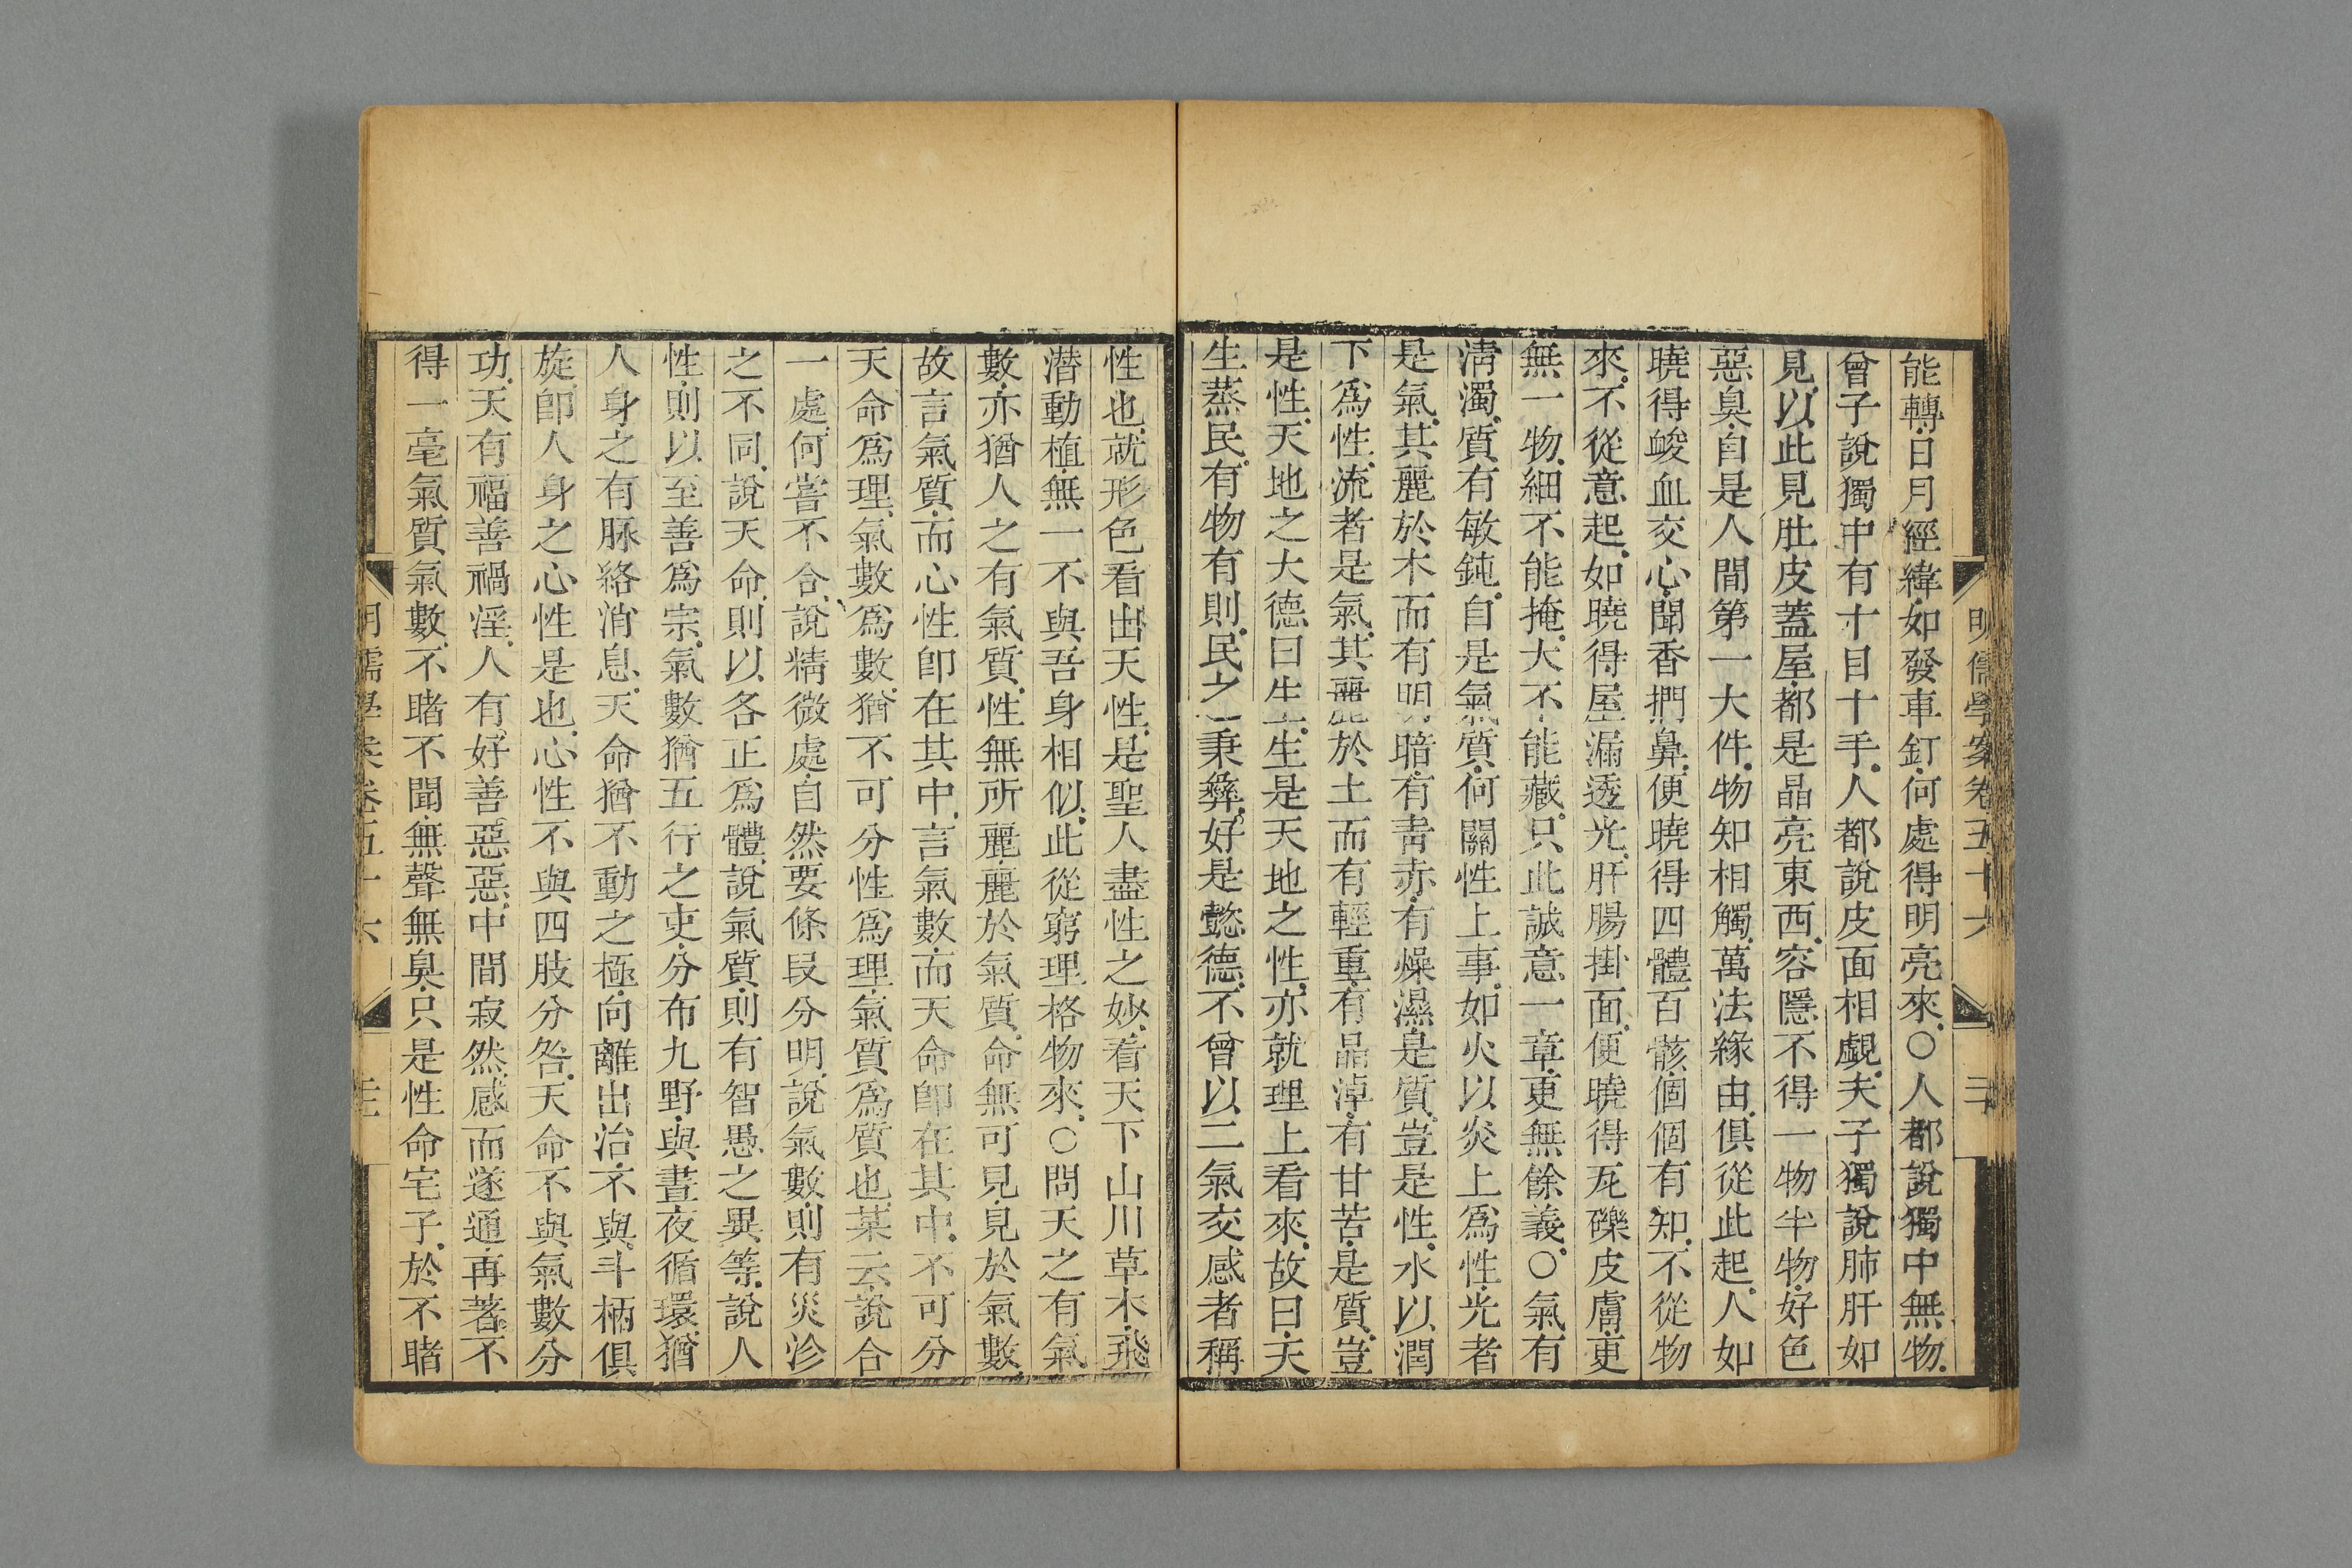 明儒學案卷五十六
二
能轉日月經緯如發車釘何處得明亮來○人都說獨中無物
曾子說獨中有十目十手人都說皮面相覷夫子獨說肺肝如
見以此見肚皮蓋屋都是晶亮東西容隱不得一物半物好色
惡臭自是人間第一大件物知相觸萬法緣由俱從此起人如
曉得峻血交心聞香捫鼻便曉得四體百骸個個有知不從物
來不從意起如曉得屋漏透光肝腸掛面便曉得瓦礫皮膚更
無一物細不能掩大不能藏只此誠意一章更無餘義○氣有
淸濁質有敏鈍自是氣質何關性上事如火以炎上爲性光者
是氣其麗於木而有明暗有靑赤有燥濕是質豈是性水以潤
下爲性流者是氣其麗於土而有輕重有晶淖有甘苦是質豈
是性天地之大德曰生生是天地之性亦就理上看來故曰天
生蒸民有物有則民之秉彝好是懿德不曾以二氣交感者稱
性也就形色看出天性是聖人盡性之妙看天下山川草木飛
潛動植無一不與吾身相似此從窮理格物來○問天之有氣
數亦猶人之有氣質性無所麗麗於氣質命無可見見於氣數
故言氣質而心性卽在其中言氣數而天命卽在其中不可分
天命爲理氣數爲數猶不可分性爲理氣質爲質也某云說合
一處何嘗不合說精微處自然要條段分明說氣數則有災沴
之不同說天命則以各正爲體說氣質則有智愚之異等說人
性則以至善爲宗氣數猶五行之吏分布九野與晝夜循環猶
人身之有脉絡消息天命猶不動之極向離出治不與斗柄俱
旋卽人身之心性是也心性不與四肢分咎天命不與氣數分
功天有福善禍淫人有好善惡惡中間寂然感而遂通再著不
得一毫氣質氣數不睹不聞無聲無臭只是性命宅子於不睹
明儒學案卷五十六
三